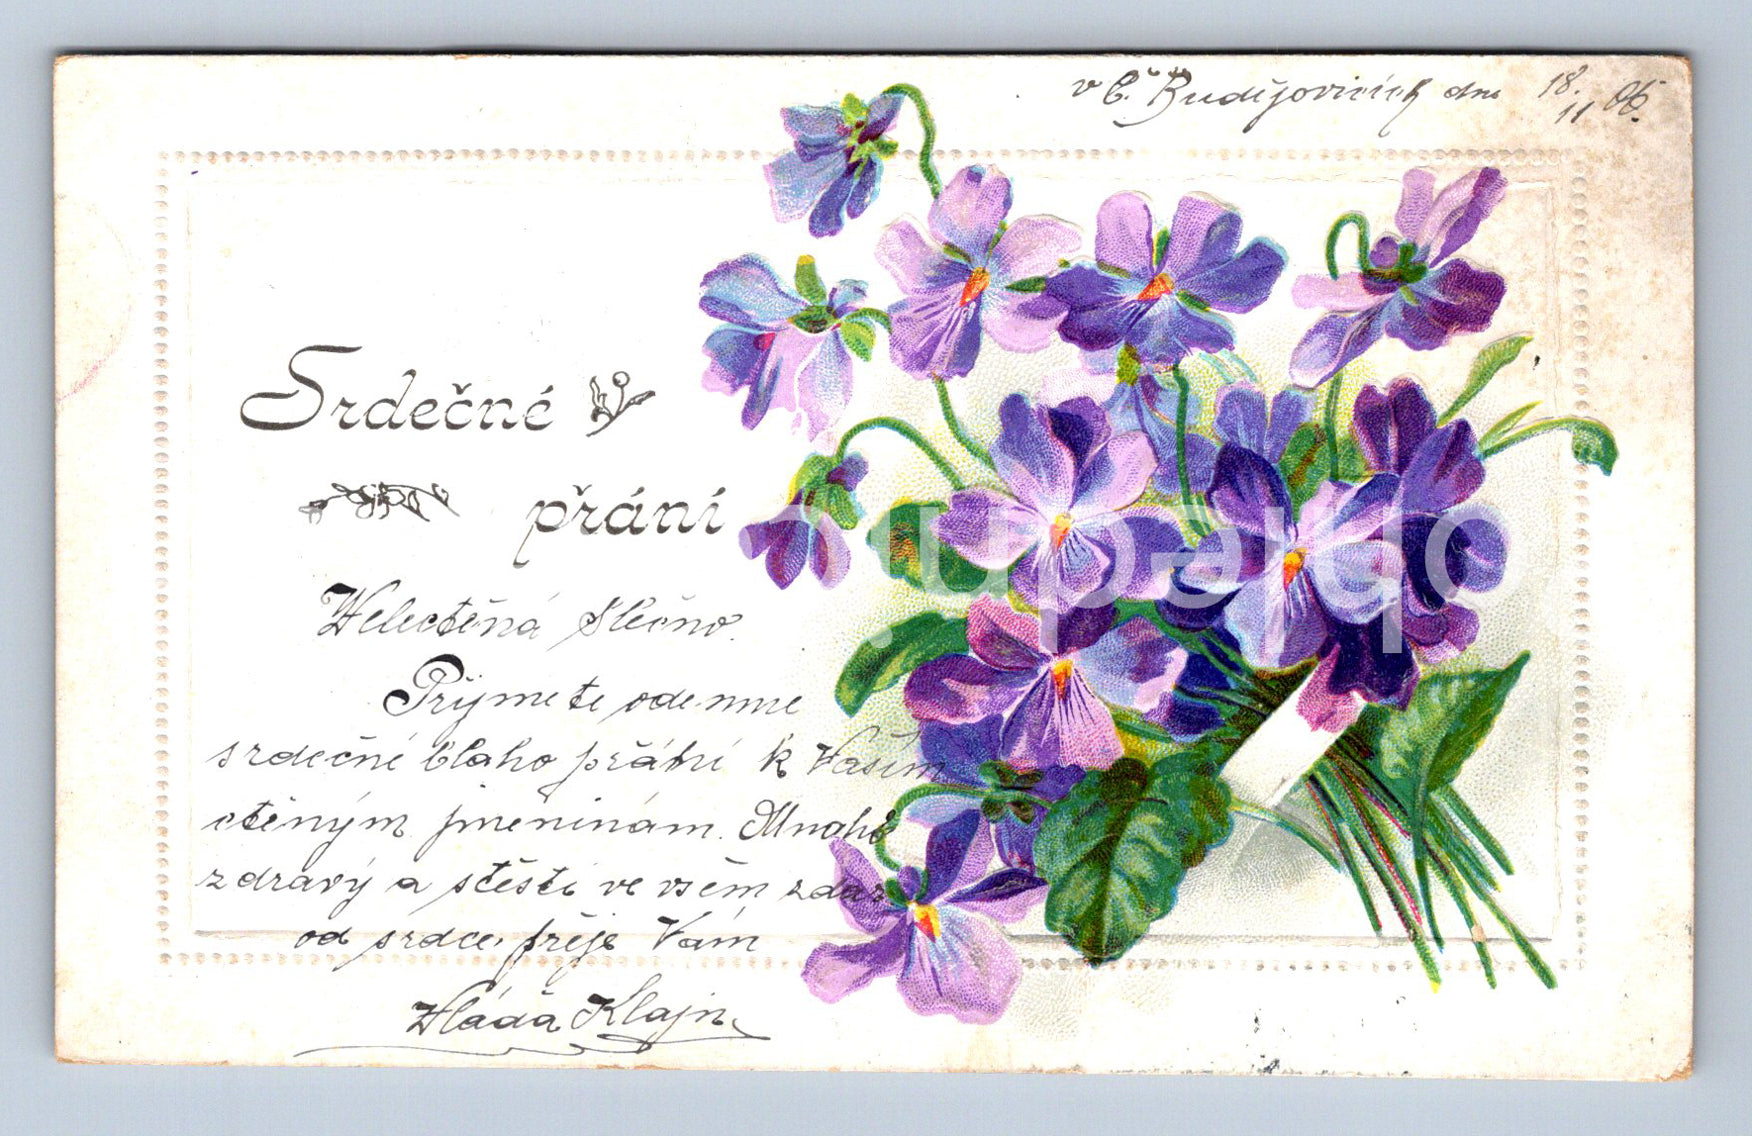 v Č. Budějovicích dne 18./11 06.
Srdečné
přání
Velectěná slečno.
Přijměte odemne
srdečné blaho přání k Vašim
ctěným jmeninám. Mnoho
zdraví a štěstí ve všem zdar
od srdce přeje Vám
Vláďa Klajn